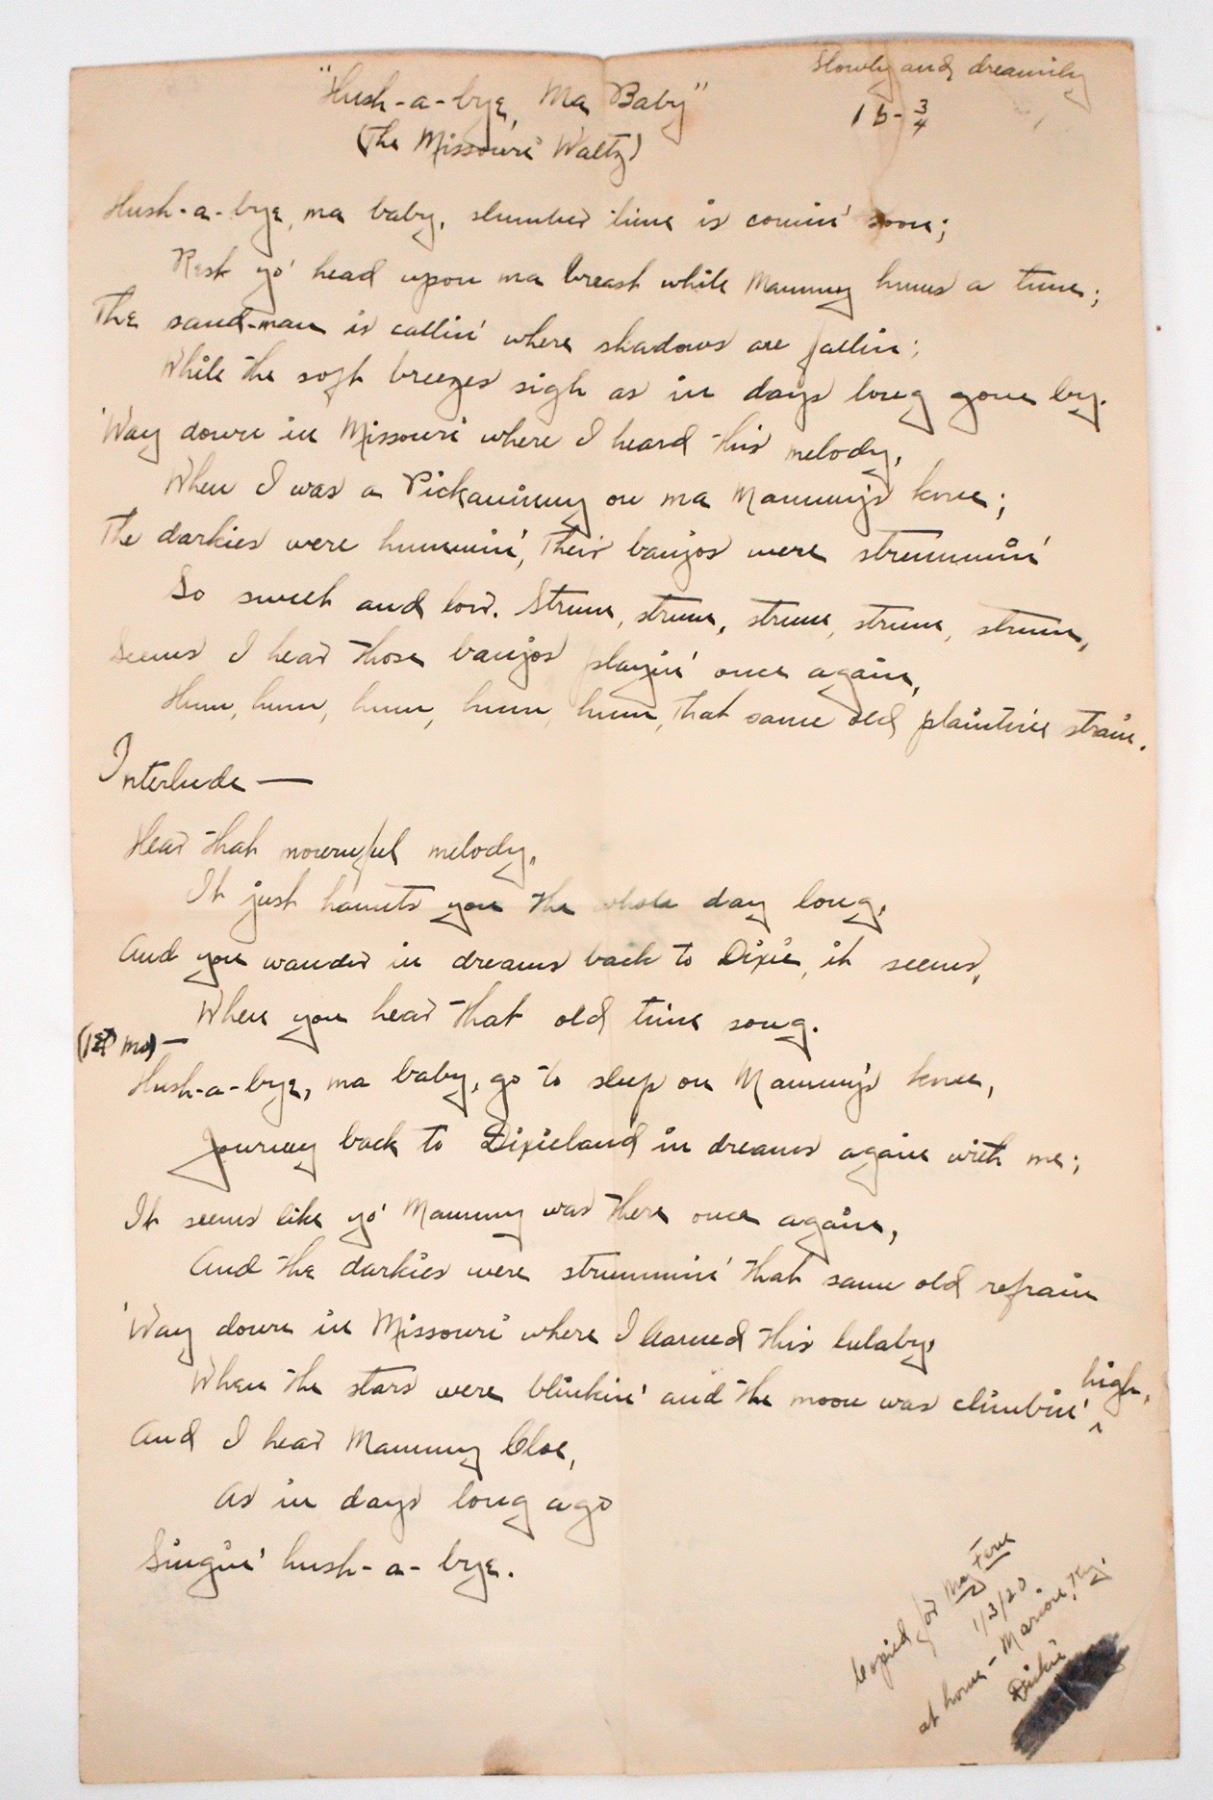 "Hush-a-bye, Ma Baby"
(The Missouri Waltz)
Slowly and dreamily
1 b - 3/4
Hush-a-bye, ma baby, slumber time is comin' soon;
Rest yo' head upon ma breast while Mammy hums a tune;
The sand-man is callin' where shadows are fallin;
While the soft breezes sigh as in days long gone by.
'Way down in Missouri where I heard this melody,
When I was a Pickaninny on ma Mammy's knee;
The darkies were hummin', their banjos were strummin'
So sweet and low. Strum, strum, strum, strum, strum,
Seems I hear those banjos playin' once again,
Hum, hum, hum, hum, hum, that same old plaintive strain.
Interlude —
Hear that mournful melody,
It just haunts you the whole day long,
And you wander in dreams back to Dixie, it seems,
When you hear that old time song.
(1st mo) —
Hush-a-bye, ma baby, go to sleep on Mammy's knee,
Journey back to Dixieland in dreams again with me;
It seems like yo' Mammy was there once again,
And the darkies were strummin' that same old refrain
'Way down in Missouri where I learned this lulaby,
When the stars were blinkin' and the moon was climbin' high,
And I hear Mammy Cloe,
As in days long ago
Singin' hush-a-bye.
Copied for May Fern
1/3/20
at home - Marion, Ky.
Dickie